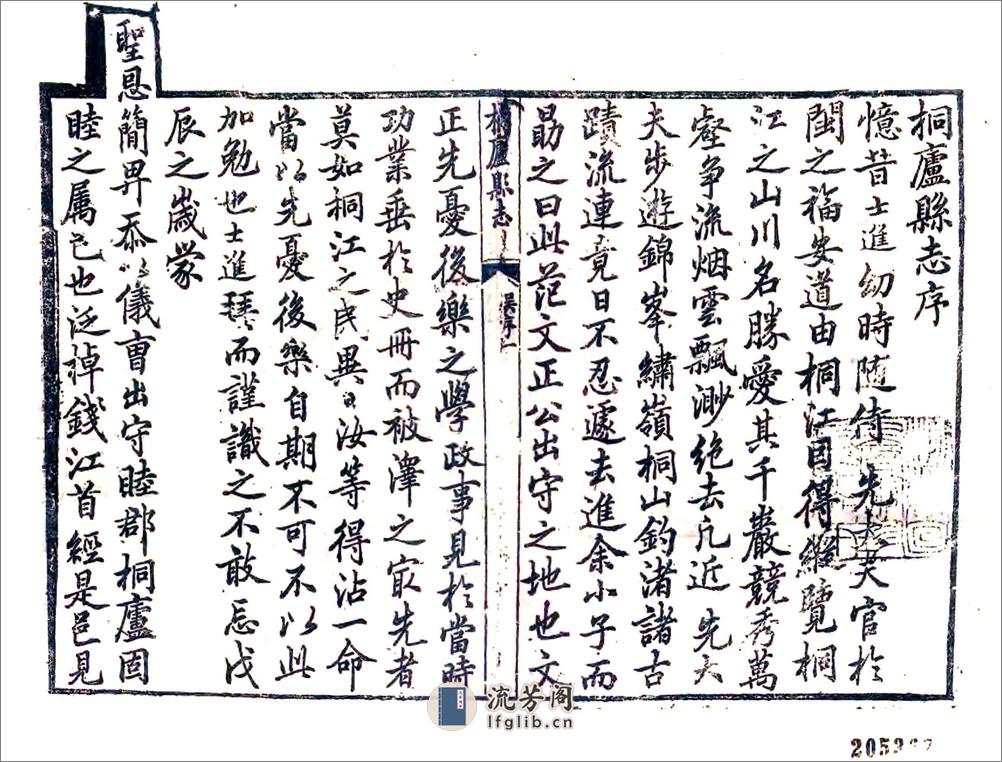 桐廬縣志序
憶昔士進幼時隨侍 先大夫官於
閩之福安道由桐江因得縱覽桐
江之山川名勝愛其千巖競秀萬
壑爭流烟雲飄渺絶去凡近先大
夫步遊錦峯繡嶺桐山釣渚諸古
蹟流連竟日不忍遽去進余小子而
勗之曰此范文正公出守之地也文
桐廬縣志
吳序一
正先憂後樂之學政事見於當時
功業垂於史冊而被澤之最先者
莫如桐江之民異日汝等得沾一命
當以先憂後樂自期不可不以此
加勉也士進拜而謹識之不敢忘戊
辰之歲蒙
聖恩簡畀忝以儀曹出守睦郡桐廬固
睦之属邑也泛棹錢江首經是邑見
流芳阁
lfglib.cn